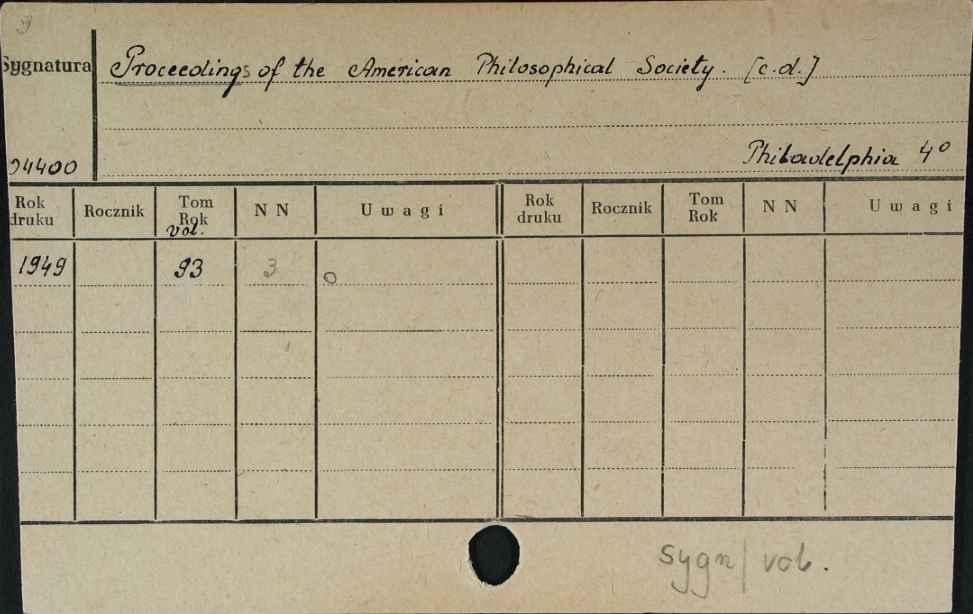 Sygnatura Proceedings of the American Philosophical Society. [c.d.]
Philadelphia 4°
04400
Rok druku Rocznik Tom Rok vol. N N Uwagi Rok druku Rocznik Tom Rok N N Uwagi
1949 93 3 0
sygn/vol.